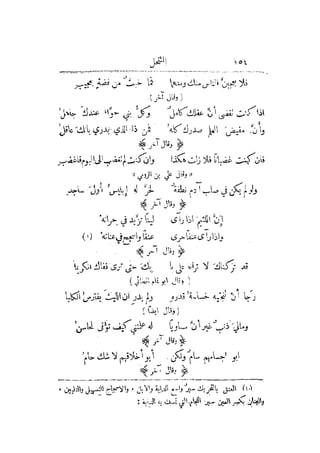 ١٥٤ التمثل
فلا تعجبن الناس منك ومنهما فما خبث من فضة بعجيب
( وقال آخر )
اذا كنت تقضي أن عقلك كامل وكل بني حواء عندك جاهل
وأن مفيض العلم صدرك كله فمن ذا الذي يدري بانك عاقل
﴿ وقال آخر ﴾
فان كنت غضباناً فلا زلت هكذا وان كنت لم تغضب الى اليوم فاغضب
« وقال علي بن الرومي »
ولو لم يكن في صلب آدم نطفة لخر له إبليس أول ساجد
﴿ وقال آخر ﴾
إن اللئيم اذا رأى ليناً تزيد في حرانه
واذا رأى عنفاً جرى عنقاً واسجح في عنانه (١)
﴿ وقال آخر ﴾
قد تركناك لا نرده على با بك حتى ترى قفاك
( وقال ابو تمام الطائي )
رجا أن تنجيه خساسة قدره ولم يدر ان الليث يفترس الكلبا
( وقال ايضا )
ومالي ذنب غير أن مساويا له علمتني كيف تؤتى المحاسن
﴿ وقال آخر ﴾
ابو اجسامهم سام ولكن أبو أخلاقهم لا شك حام
﴿ وقال آخر ﴾
(١) العنق بالتحريك سير واسع للدابة والابل • والاسجاح التسهيل •
والعنان بكسر العين سير اللجام الذي تمسك به الدابة :